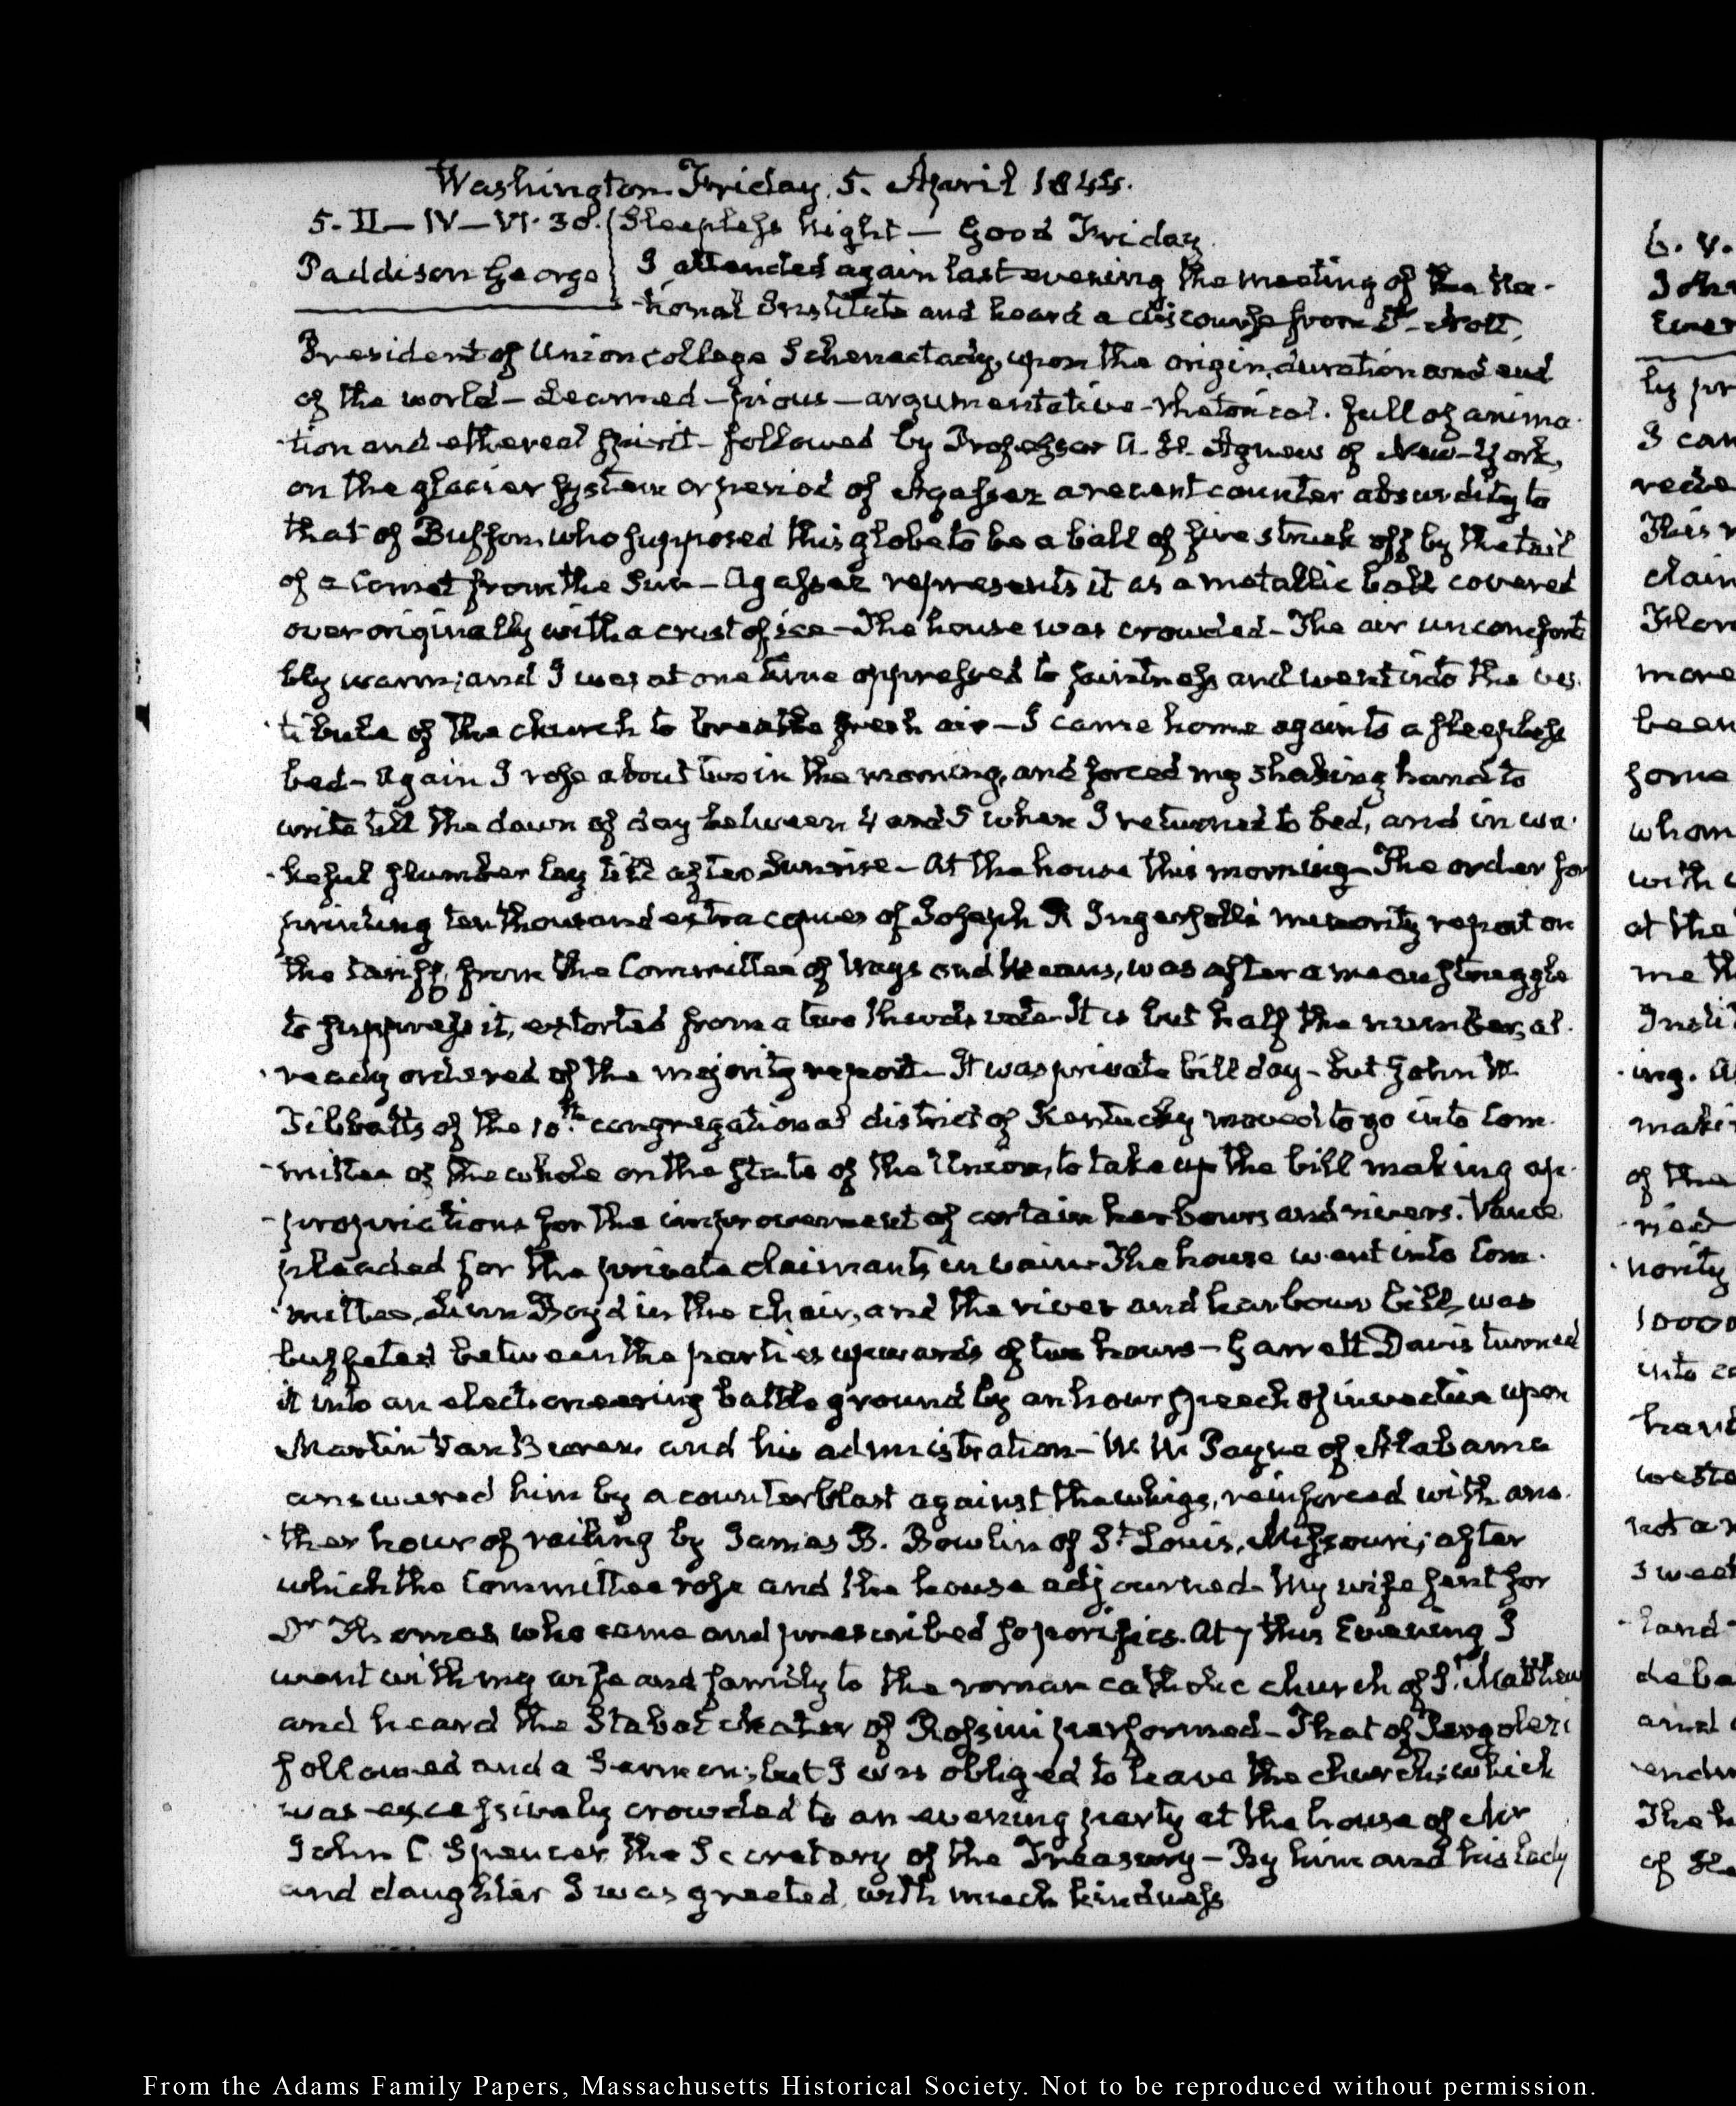 Washington Friday 5. April 1844.
5. II—IV—VI. 30. Sleepless Night — Good Friday.
Paddison George
I attended again last evening the meeting of the Na-
-tional Institute and heard a discourse from Dr. Nott,
President of Union College Schenectady, upon the origin, duration and end
of the world — Learned — pious — argumentative — rhetorical. full of anima-
-tion and ethereal spirit — followed by Professor A. H. Agnew of New-York,
on the glacier system or period of Agassez a recent counter absurdity to
that of Buffon, who supposed this globe to be a ball of fire struck off by the tail
of a Comet from the Sun — Agassez represents it as a metallic ball covered
over originally with a crust of ice — The house was crowded — The air uncomforta
bly warm; and I was at one time oppressed to faintness and went into the ves-
-tibule of the church to breathe fresh air — I came home again to a sleepless
bed — Again I rose about two in the morning, and forced my shaking hand to
write till the dawn of day between 4 and 5 when I returned to bed, and in wa-
-keful slumber lay till after Sunrise — At the house this morning — The order for
printing ten thousand extra copies of Joseph R Ingersoll's minority report on
the tariff, from the Committee of Ways and Means, was after a mean struggle
to suppress it, extorted from a two thirds vote — It is but half the number, al-
-ready ordered of the majority report — It was private bill day — but John W
Tibbatts of the 10th. congregational district of Kentucky moved to go into Com-
-mittee of the whole on the state of the Union, to take up the bill making ap-
-propriations for the improvement of certain harbours and rivers. Vance
pleaded for the private claimants in vain — The house went into Com-
-mittee, Linn Boyd in the chair, and the river and harbour bill, was
buffeted between the parties upwards of two hours — Garrett Davis turned
it into an electioneering battle ground by an hour speech of invective upon
Martin Van Buren and his administration — W. W. Payne of Alabama
answered him by a counterblast against the whigs, reinforced with ano-
-ther hour of railing by James B. Bowlin of St. Louis, Missouri; after
which the Committee rose and the house adjourned — My wife sent for
Dr Thomas who came and prescribed soporifics. At 7 this Evening I
went with my wife and family to the roman catholic church of St. Matthew
and heard the Stabat Mater of Rossini performed — That of Pergolesi
followed and a Sermon; but I was obliged to leave the church, which
was excessively crowded to an evening party at the house of Mr
John C Spencer, the Secretary of the Treasury — By him and his lady
and daughter I was greeted with much kindness
From the Adams Family Papers, Massachusetts Historical Society. Not to be reproduced without permission.